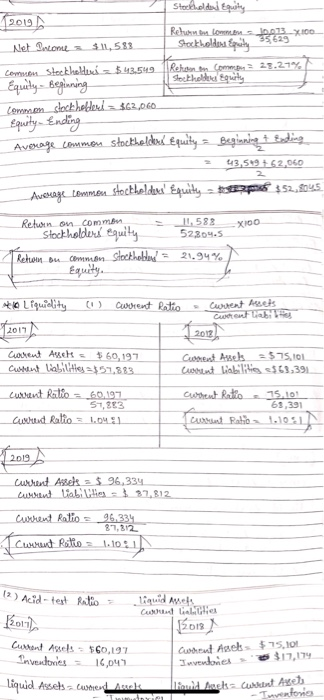 Stockholders Equity
[2019]
Return on Common = 10,073 x100
Stockholders Equity 35,629
Net Income = $11,588
Return on Common = 28.27%
Stockholders Equity
Common Stockholders = $43,549
Equity - Beginning
Common stockholders = $62,060
Equity - Ending
Average common stockholders Equity = Beginning + Ending
2
= 43,549 + 62,060
2
Average Common Stockholders' Equity = $52,804.5
Return on common = 11,588 x100
Stockholders' equity 52804.5
Return on common Stockholders' = 21.94%
Equity.
Liquidity (1) Current Ratio = Current Assets
Current liabilities
[2017]
Current Assets = $60,197
Current Liabilities = $57,883
Current Ratio = 60,197
57,883
Current Ratio = 1.04:1
[2018]
Current Assets = $75,101
Current liabilities = $68,391
Current Ratio = 75,101
68,391
Current Ratio = 1.10:1
[2019]
Current Assets = $96,334
Current Liabilities = $87,812
Current Ratio = 96,334
87,812
Current Ratio = 1.10:1
(2) Acid-test Ratio = Liquid Assets
Current liabilities
[2017]
Current Assets = $60,197
Inventories = 16,047
Liquid Assets = Current Assets
[2018]
Current Assets = $75,101
Inventories = $17,174
Liquid Assets = Current Assets
- Inventories